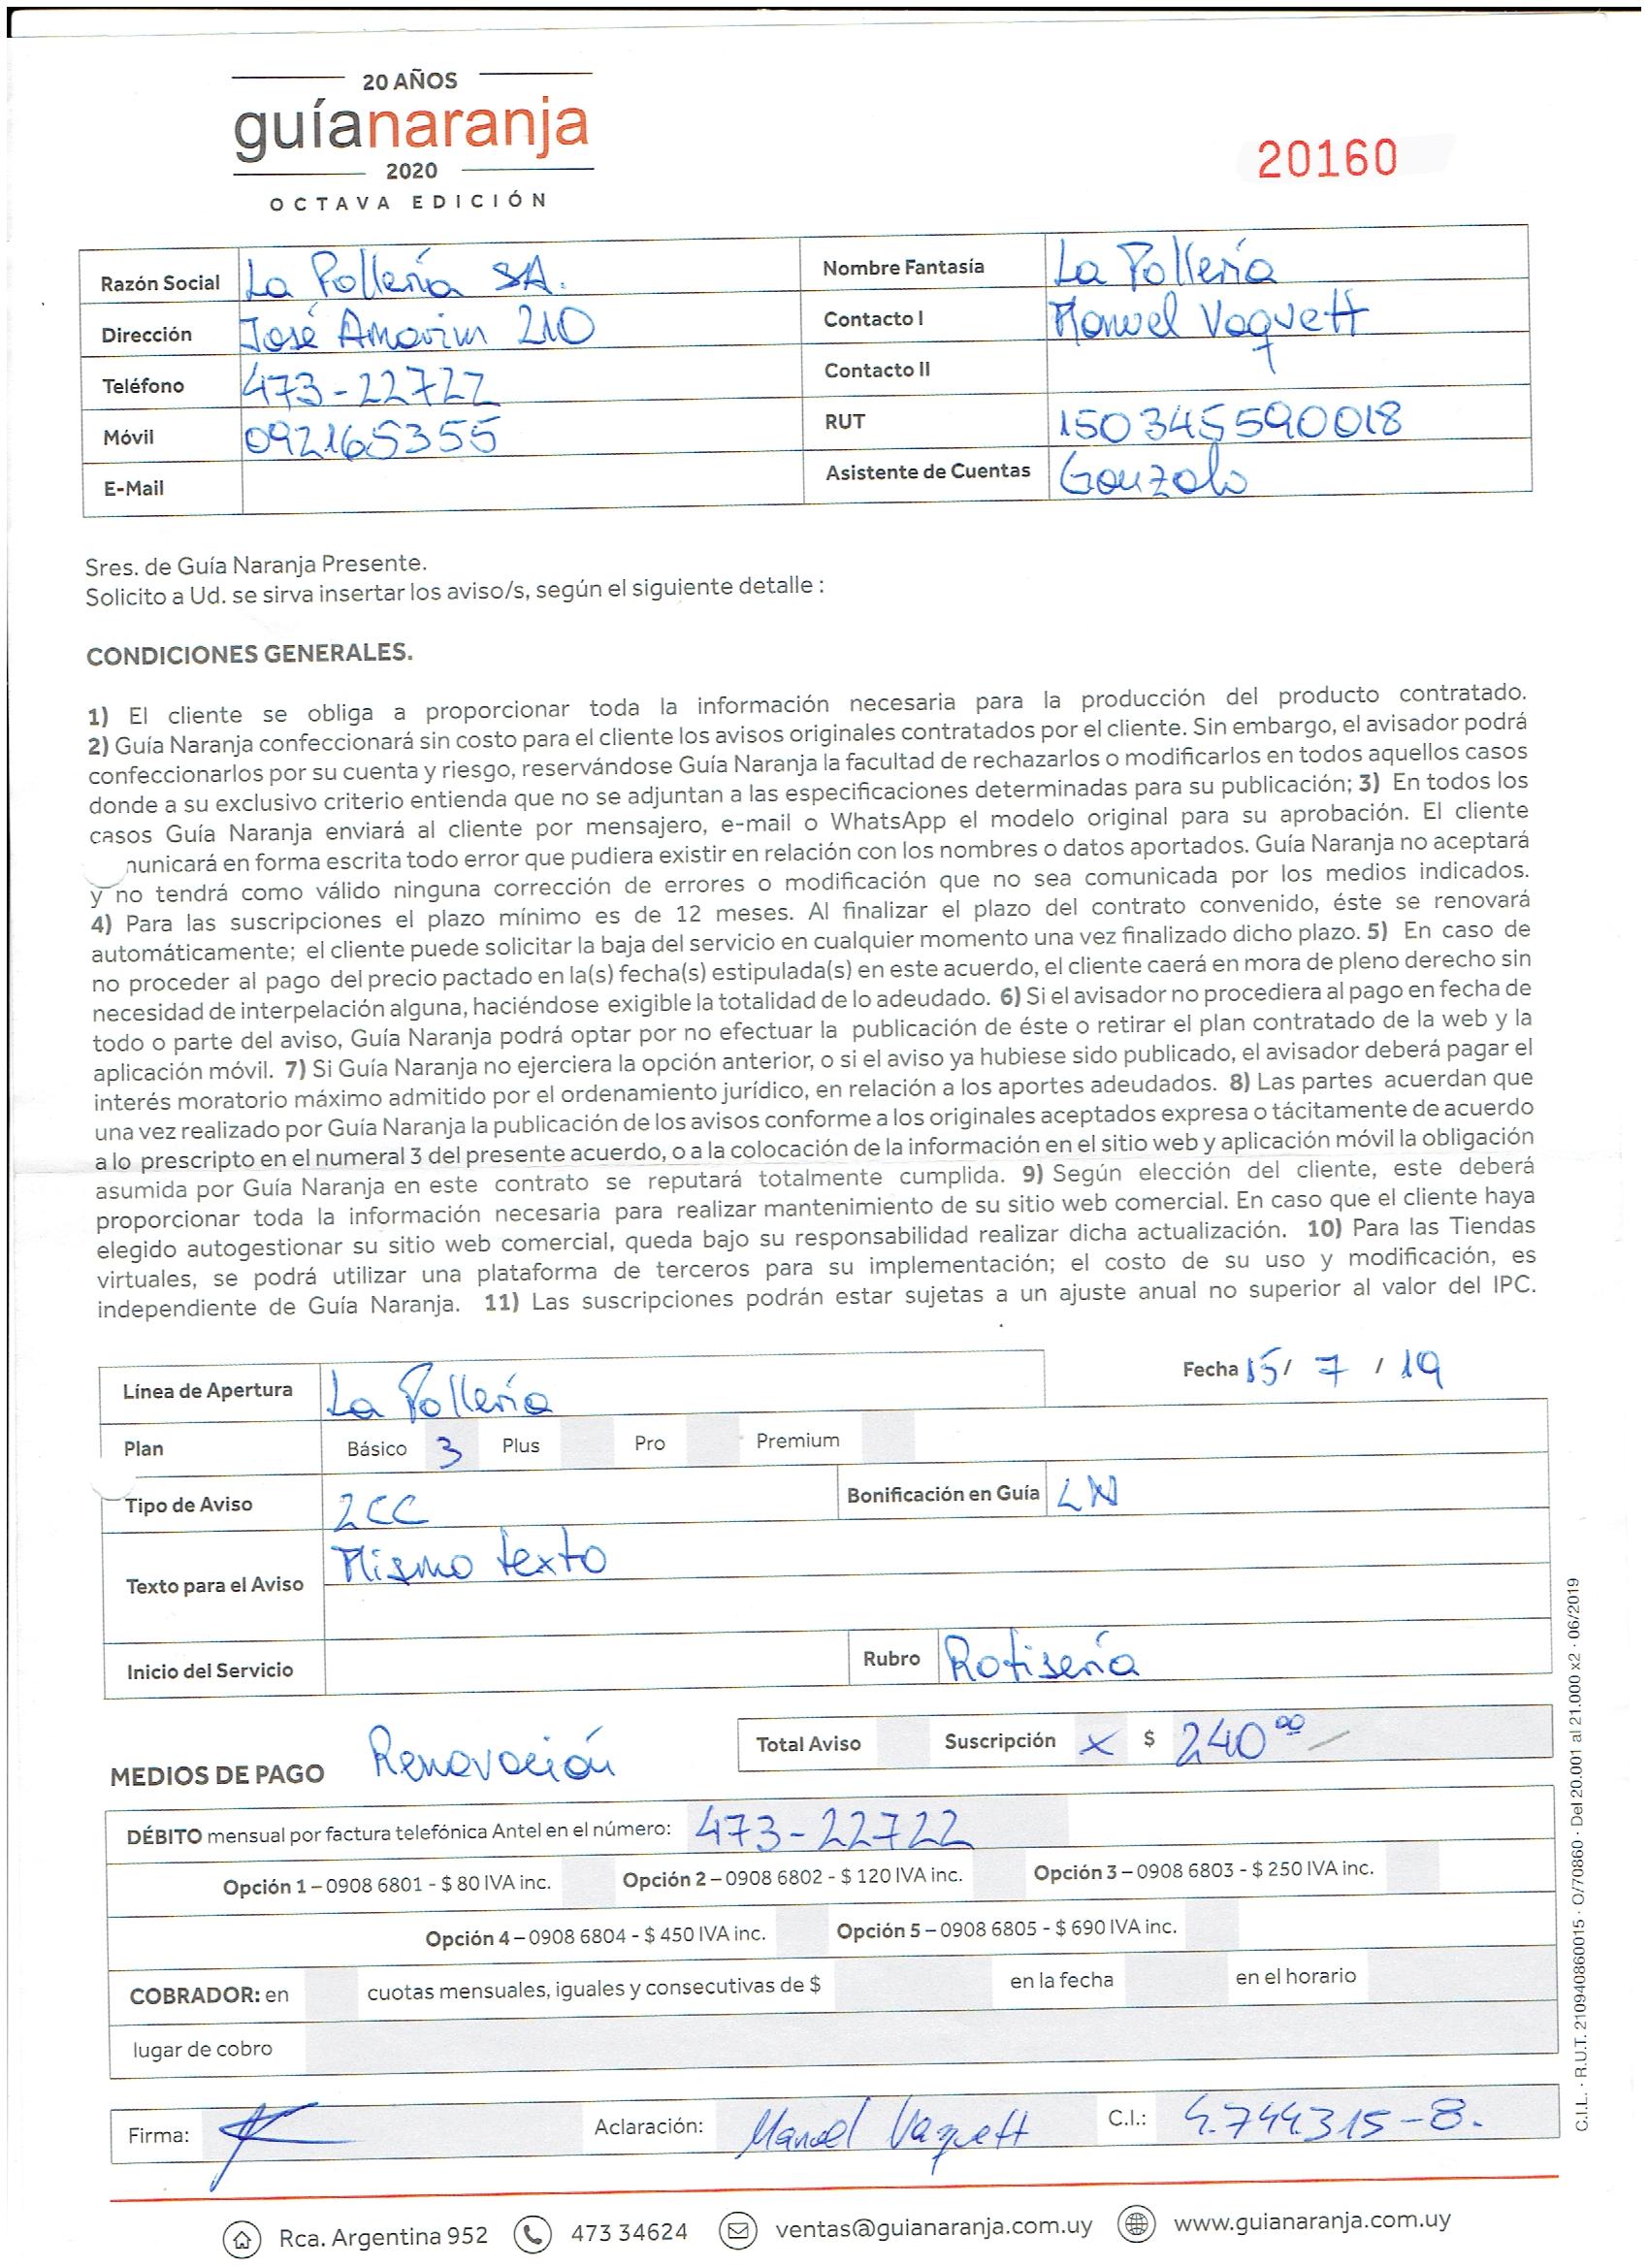 20 AÑOS
guíanaranja
2020
OCTAVA EDICIÓN
20160
Razón Social La Pollería SA.
Nombre Fantasía La Pollería
Dirección José Amorim 210
Contacto I Manuel Vaquett
Teléfono 473-22722
Contacto II
Móvil 092165355
RUT 150345590018
E-Mail
Asistente de Cuentas Gonzalo
Sres. de Guía Naranja Presente.
Solicito a Ud. se sirva insertar los aviso/s, según el siguiente detalle :
CONDICIONES GENERALES.
1) El cliente se obliga a proporcionar toda la información necesaria para la producción del producto contratado.
2) Guía Naranja confeccionará sin costo para el cliente los avisos originales contratados por el cliente. Sin embargo, el avisador podrá
confeccionarlos por su cuenta y riesgo, reservándose Guía Naranja la facultad de rechazarlos o modificarlos en todos aquellos casos
donde a su exclusivo criterio entienda que no se adjuntan a las especificaciones determinadas para su publicación; 3) En todos los
casos Guía Naranja enviará al cliente por mensajero, e-mail o WhatsApp el modelo original para su aprobación. El cliente
nunicará en forma escrita todo error que pudiera existir en relación con los nombres o datos aportados. Guía Naranja no aceptará
y no tendrá como válido ninguna corrección de errores o modificación que no sea comunicada por los medios indicados.
4) Para las suscripciones el plazo mínimo es de 12 meses. Al finalizar el plazo del contrato convenido, éste se renovará
automáticamente; el cliente puede solicitar la baja del servicio en cualquier momento una vez finalizado dicho plazo. 5) En caso de
no proceder al pago del precio pactado en la(s) fecha(s) estipulada(s) en este acuerdo, el cliente caerá en mora de pleno derecho sin
necesidad de interpelación alguna, haciéndose exigible la totalidad de lo adeudado. 6) Si el avisador no procediera al pago en fecha de
todo o parte del aviso, Guía Naranja podrá optar por no efectuar la publicación de éste o retirar el plan contratado de la web y la
aplicación móvil. 7) Si Guía Naranja no ejerciera la opción anterior, o si el aviso ya hubiese sido publicado, el avisador deberá pagar el
interés moratorio máximo admitido por el ordenamiento jurídico, en relación a los aportes adeudados. 8) Las partes acuerdan que
una vez realizado por Guía Naranja la publicación de los avisos conforme a los originales aceptados expresa o tácitamente de acuerdo
a lo prescripto en el numeral 3 del presente acuerdo, o a la colocación de la información en el sitio web y aplicación móvil la obligación
asumida por Guía Naranja en este contrato se reputará totalmente cumplida. 9) Según elección del cliente, este deberá
proporcionar toda la información necesaria para realizar mantenimiento de su sitio web comercial. En caso que el cliente haya
elegido autogestionar su sitio web comercial, queda bajo su responsabilidad realizar dicha actualización. 10) Para las Tiendas
virtuales, se podrá utilizar una plataforma de terceros para su implementación; el costo de su uso y modificación, es
independiente de Guía Naranja. 11) Las suscripciones podrán estar sujetas a un ajuste anual no superior al valor del IPC.
Línea de Apertura La Pollería
Fecha 15/ 7 / 19
Plan Básico 3 Plus Pro Premium
Tipo de Aviso 2CC
Bonificación en Guía LN
Texto para el Aviso Mismo texto
Inicio del Servicio
Rubro Rotisería
MEDIOS DE PAGO Renovación
Total Aviso Suscripción x $ 240 00
DÉBITO mensual por factura telefónica Antel en el número: 473-22722
Opción 1 – 0908 6801 - $ 80 IVA inc. Opción 2 – 0908 6802 - $ 120 IVA inc. Opción 3 – 0908 6803 - $ 250 IVA inc.
Opción 4 – 0908 6804 - $ 450 IVA inc. Opción 5 – 0908 6805 - $ 690 IVA inc.
COBRADOR: en cuotas mensuales, iguales y consecutivas de $ en la fecha en el horario
lugar de cobro
Firma: Aclaración: Manuel Vaquett C.I.: 4.744.315-8.
Rca. Argentina 952 473 34624 ventas@guianaranja.com.uy www.guianaranja.com.uy
C.I.L. · R.U.T. 210940860015 · O/70860 · Del 20.001 al 21.000 x2 · 06/2019